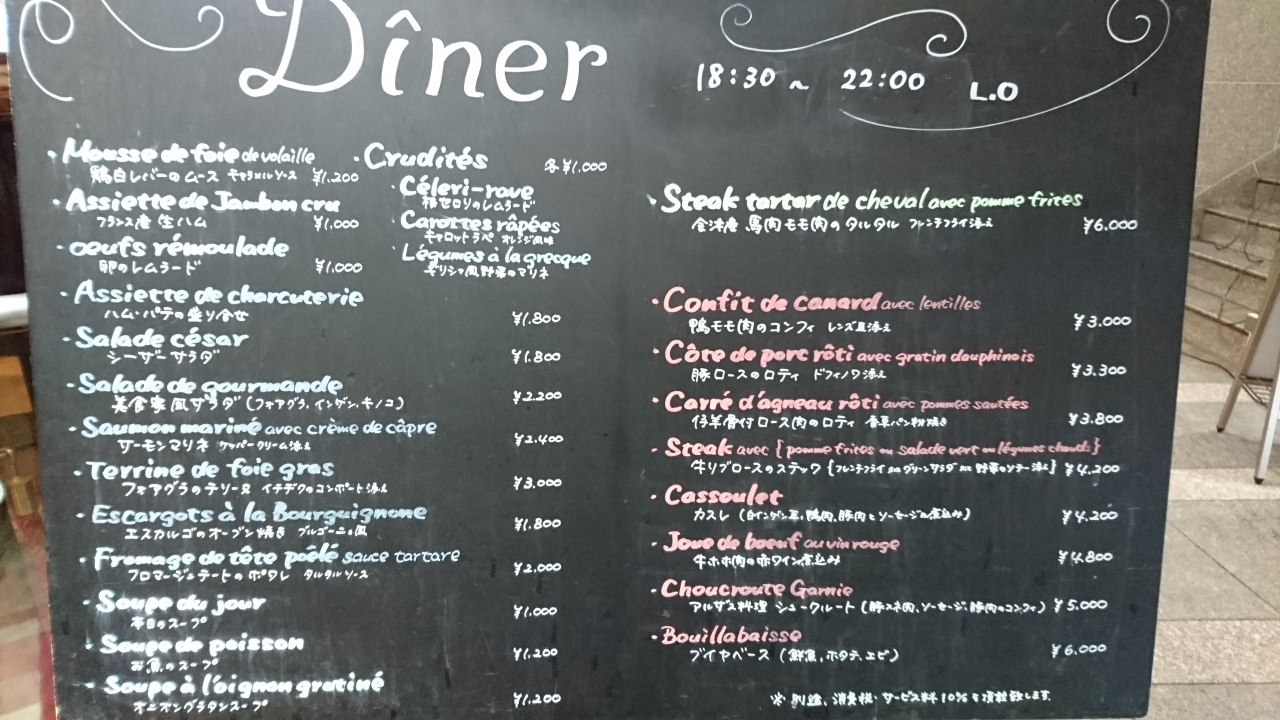 Dîner
18:30 ~ 22:00 L.O
・Mousse de foie de volaille
鶏白レバーのムース キャラメルソース ¥1.200
・Assiette de Jambon cru
フランス産 生ハム ¥1.000
・oeufs rémoulade
卵のレムラード ¥1.000
・Crudités 各¥1.000
・Céleri-rave
根セロリのレムラード
・Carottes râpées
キャロットラペ オレンジ風味
・Légumes à la grecque
ギリシャ風野菜のマリネ
・Assiette de charcuterie
ハム・パテの盛り合せ ¥1.800
・Salade césar
シーザーサラダ ¥1.800
・Salade de gourmande
美食家風サラダ (フォアグラ、インゲン、キノコ) ¥2.200
・Saumon mariné avec crème de câpre
サーモンマリネ ケッパークリーム添え ¥2.400
・Terrine de foie gras
フォアグラのテリーヌ イチヂクのコンポート添え ¥3.000
・Escargots à la Bourguignone
エスカルゴのオーブン焼き ブルゴーニュ風 ¥1.800
・Fromage de tête poêlé sauce tartare
フロマージュテートのポワレ タルタルソース ¥2.000
・Soupe du jour
本日のスープ ¥1.000
・Soupe de poisson
お魚のスープ ¥1.200
・Soupe à l'oignon gratiné
オニオングラタンスープ ¥1.200
・Steak tartar de cheval avec pomme frites
会津産 馬肉モモ肉のタルタル フレンチフライ添え ¥6.000
・Confit de canard avec lentilles
鴨モモ肉のコンフィ レンズ豆添え ¥3.000
・Côte de porc rôti avec gratin dauphinois
豚ロースのロティ ドフィノワ添え ¥3.300
・Carré d'agneau rôti avec pommes sautées
仔羊骨付ロース肉のロティ 香草パン粉焼き ¥3.800
・Steak avec {pomme frites ou salade vert ou légumes chauds}
牛リブロースのステック {フレンチフライ or グリーンサラダ or 野菜のソテー添え} ¥4.200
・Cassoulet
カスレ (白インゲン豆、鴨肉、豚肉とソーセージの煮込み) ¥4.200
・Joue de boeuf au vin rouge
牛ホホ肉の赤ワイン煮込み ¥4.800
・Choucroute Garnie
アルザス料理 シュークルート (豚スネ肉、ソーセージ、豚肉のコンフィ) ¥5.000
・Bouillabaisse
ブイヤベース (鮮魚、ホタテ、エビ) ¥6.000
※ 別途、消費税・サービス料10%を頂戴致します。